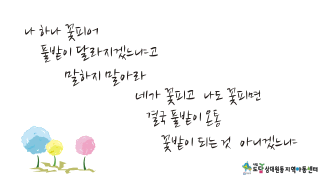 나 하나 꽃피어
풀밭이 달라지겠느냐고
말하지 말아라
네가 꽃피고 나도 꽃피면
결국 풀밭이 온통
꽃밭이 되는 것 아니겠느냐
도담 상대원동지역아동센터